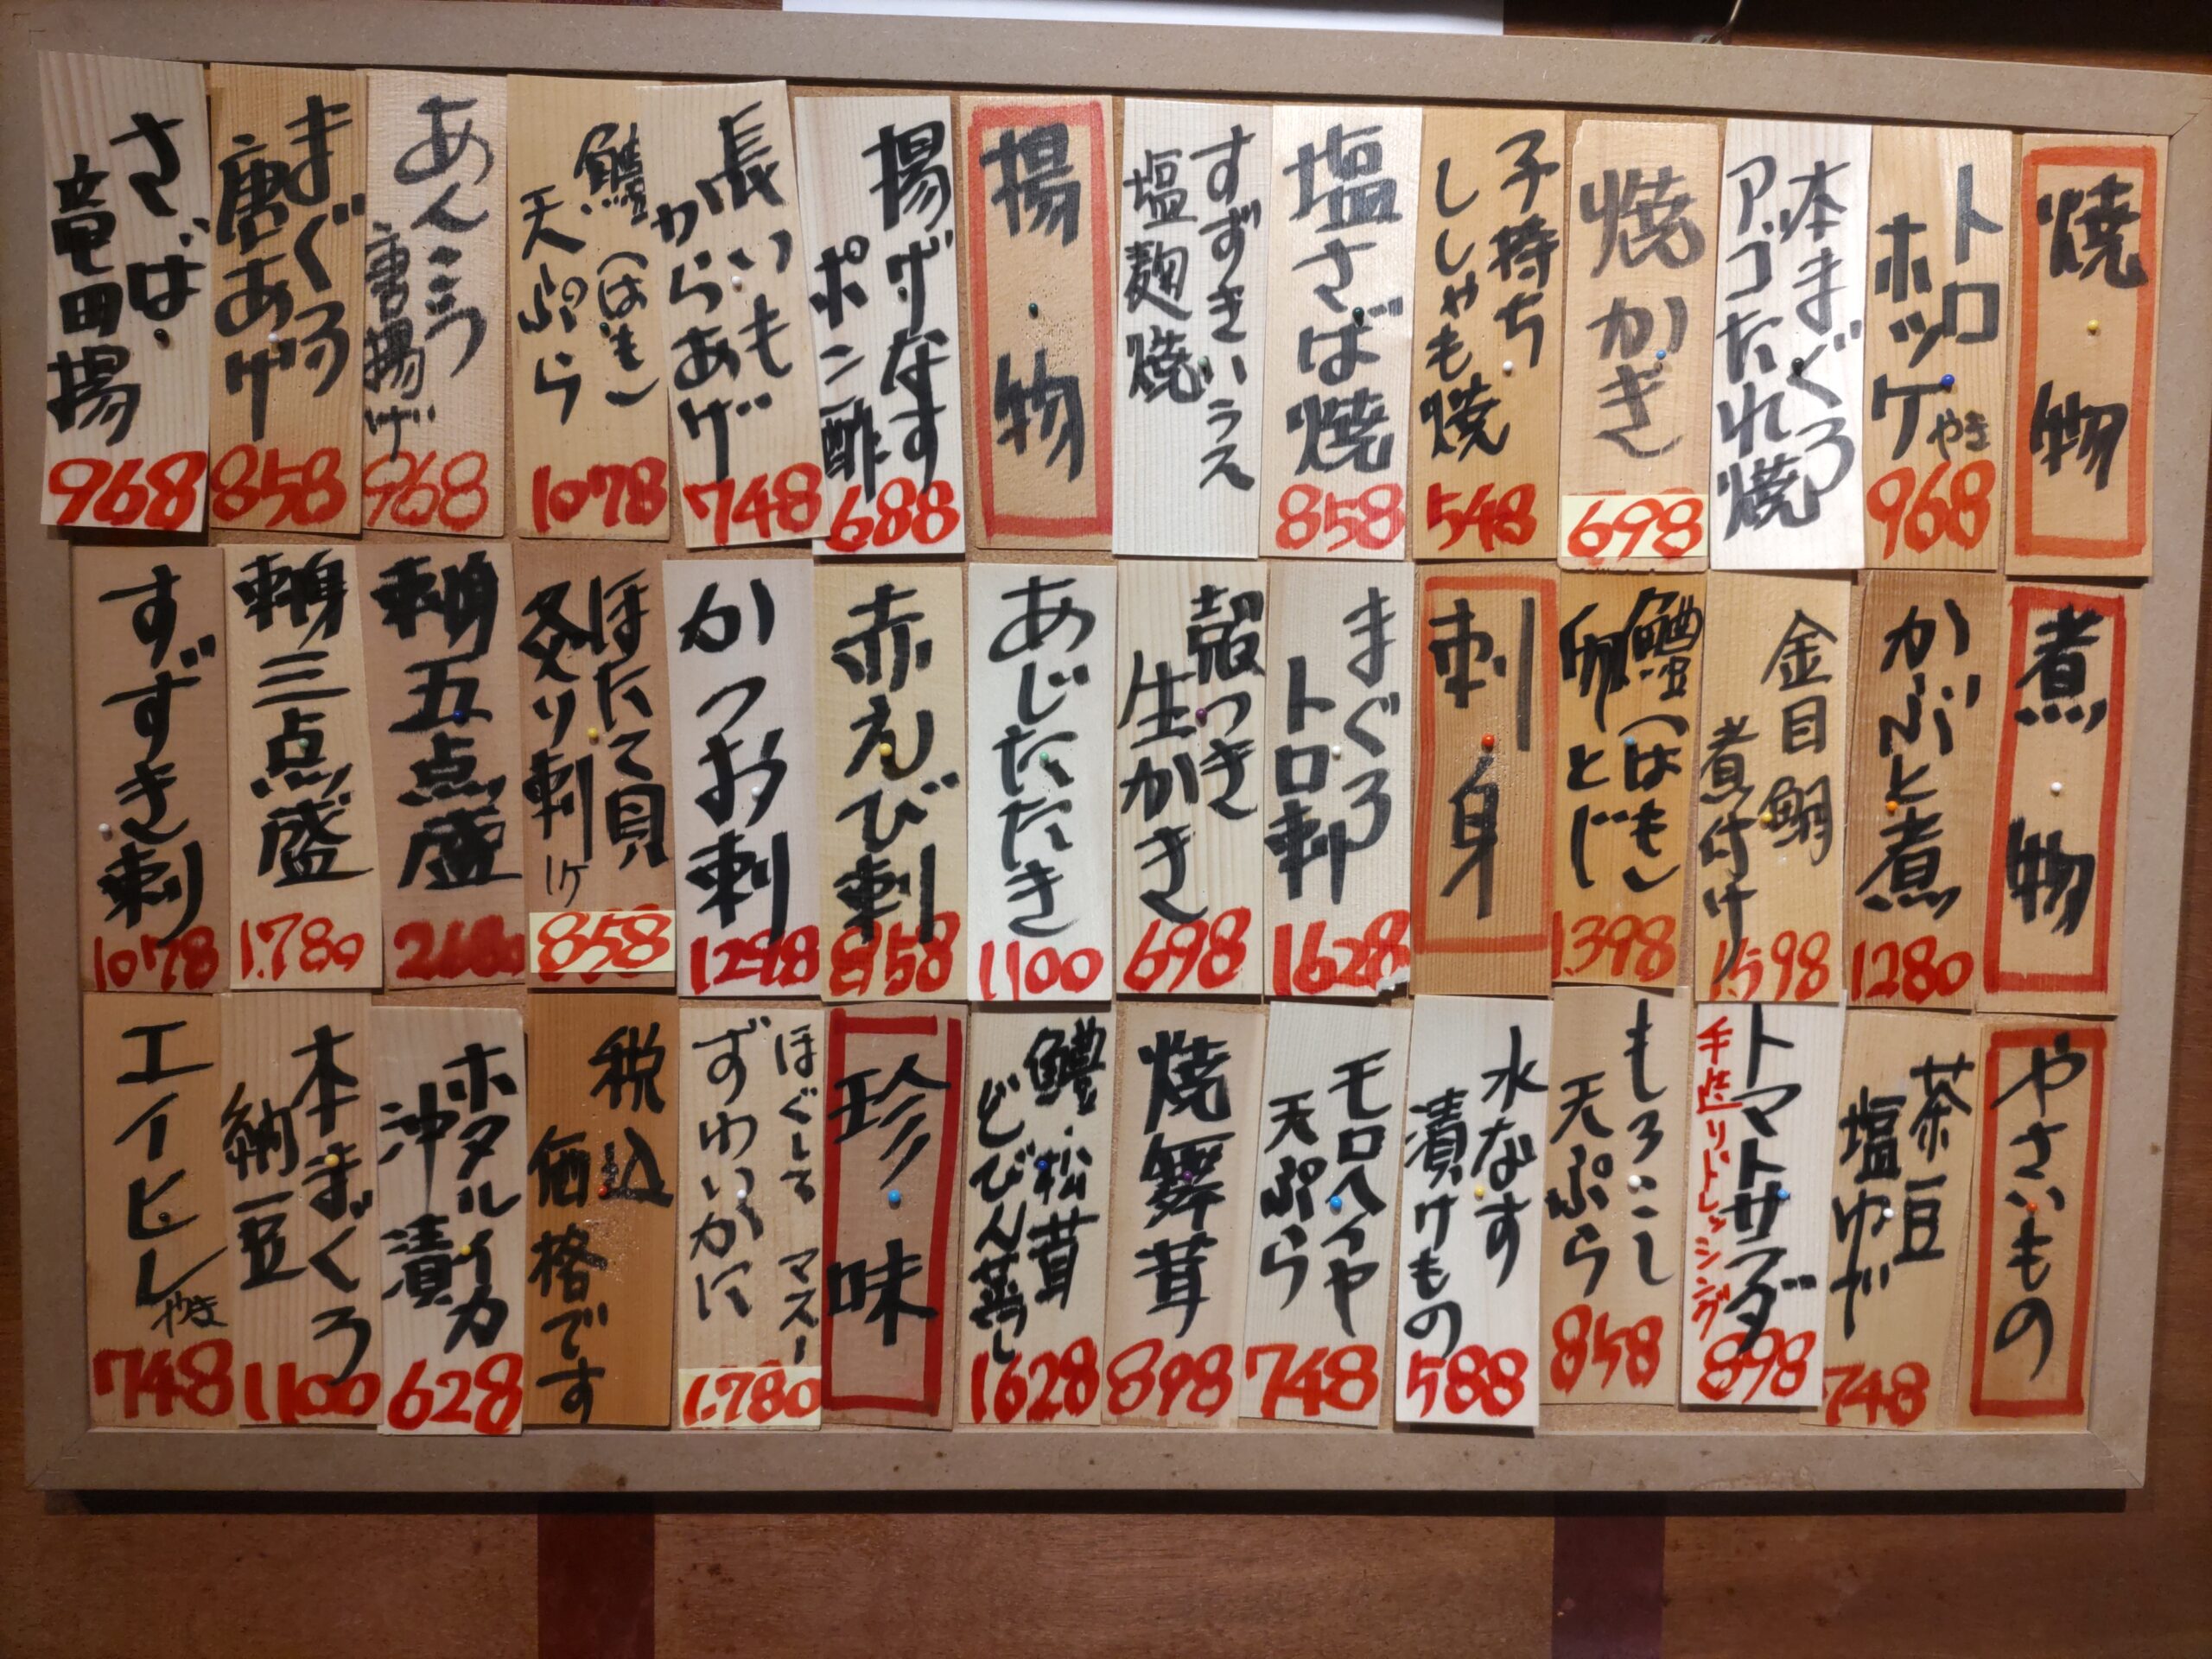 焼物
トロ
ホッケやき
968
本まぐろ
アゴたれ焼
焼かき
698
子持ち
ししゃも焼
548
塩さば焼
858
すずきハラス
塩麹焼
揚物
揚げなす
ポン酢
688
長いも
からあげ
748
鱧(はも)
天ぷら
1078
あんこう
唐揚げ
968
まぐろ
唐あげ
858
さば
竜田揚
968
煮物
かぶと煮
1280
金目鯛
煮付け
1,598
鱧(はも)
卵とじ
1398
刺身
まぐろ
トロ刺
1628
殻つき
生かき
698
あじたたき
1100
赤えび刺
858
かつお刺
1298
ほたて貝
炙り刺1ヶ
858
刺身五点盛
2680
刺身三点盛
1.780
すずき刺
1078
やさいもの
茶豆
塩ゆで
748
トマトサラダ
手造りドレッシング
898
もろこし
天ぷら
858
水なす
漬けもの
588
モロヘイヤ
天ぷら
748
焼舞茸
898
鱧・松茸
どびん蒸し
1628
珍味
ほぐしてる マスよー
ずわいがに
1.780
税込
価格です
ホタルイカ
沖漬
628
本まぐろ
納豆
1100
エイヒレやき
748